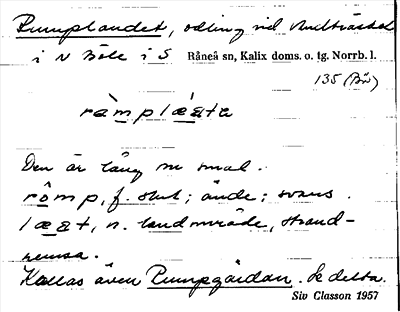 Rumplandet, odling vid Avilträsket
i N Böle i S Råneå sn, Kalix doms. o. tg. Norrb. l.
135 (Bö)
ràmplá̱æ̱ta
Den är lång ne smal.
rômp, f. slut; ände; svans.
læ̱æt, n. landområde, strand-
remsa.
Kallas även Rumpgärdan. Se detta.
Siv Classon 1957